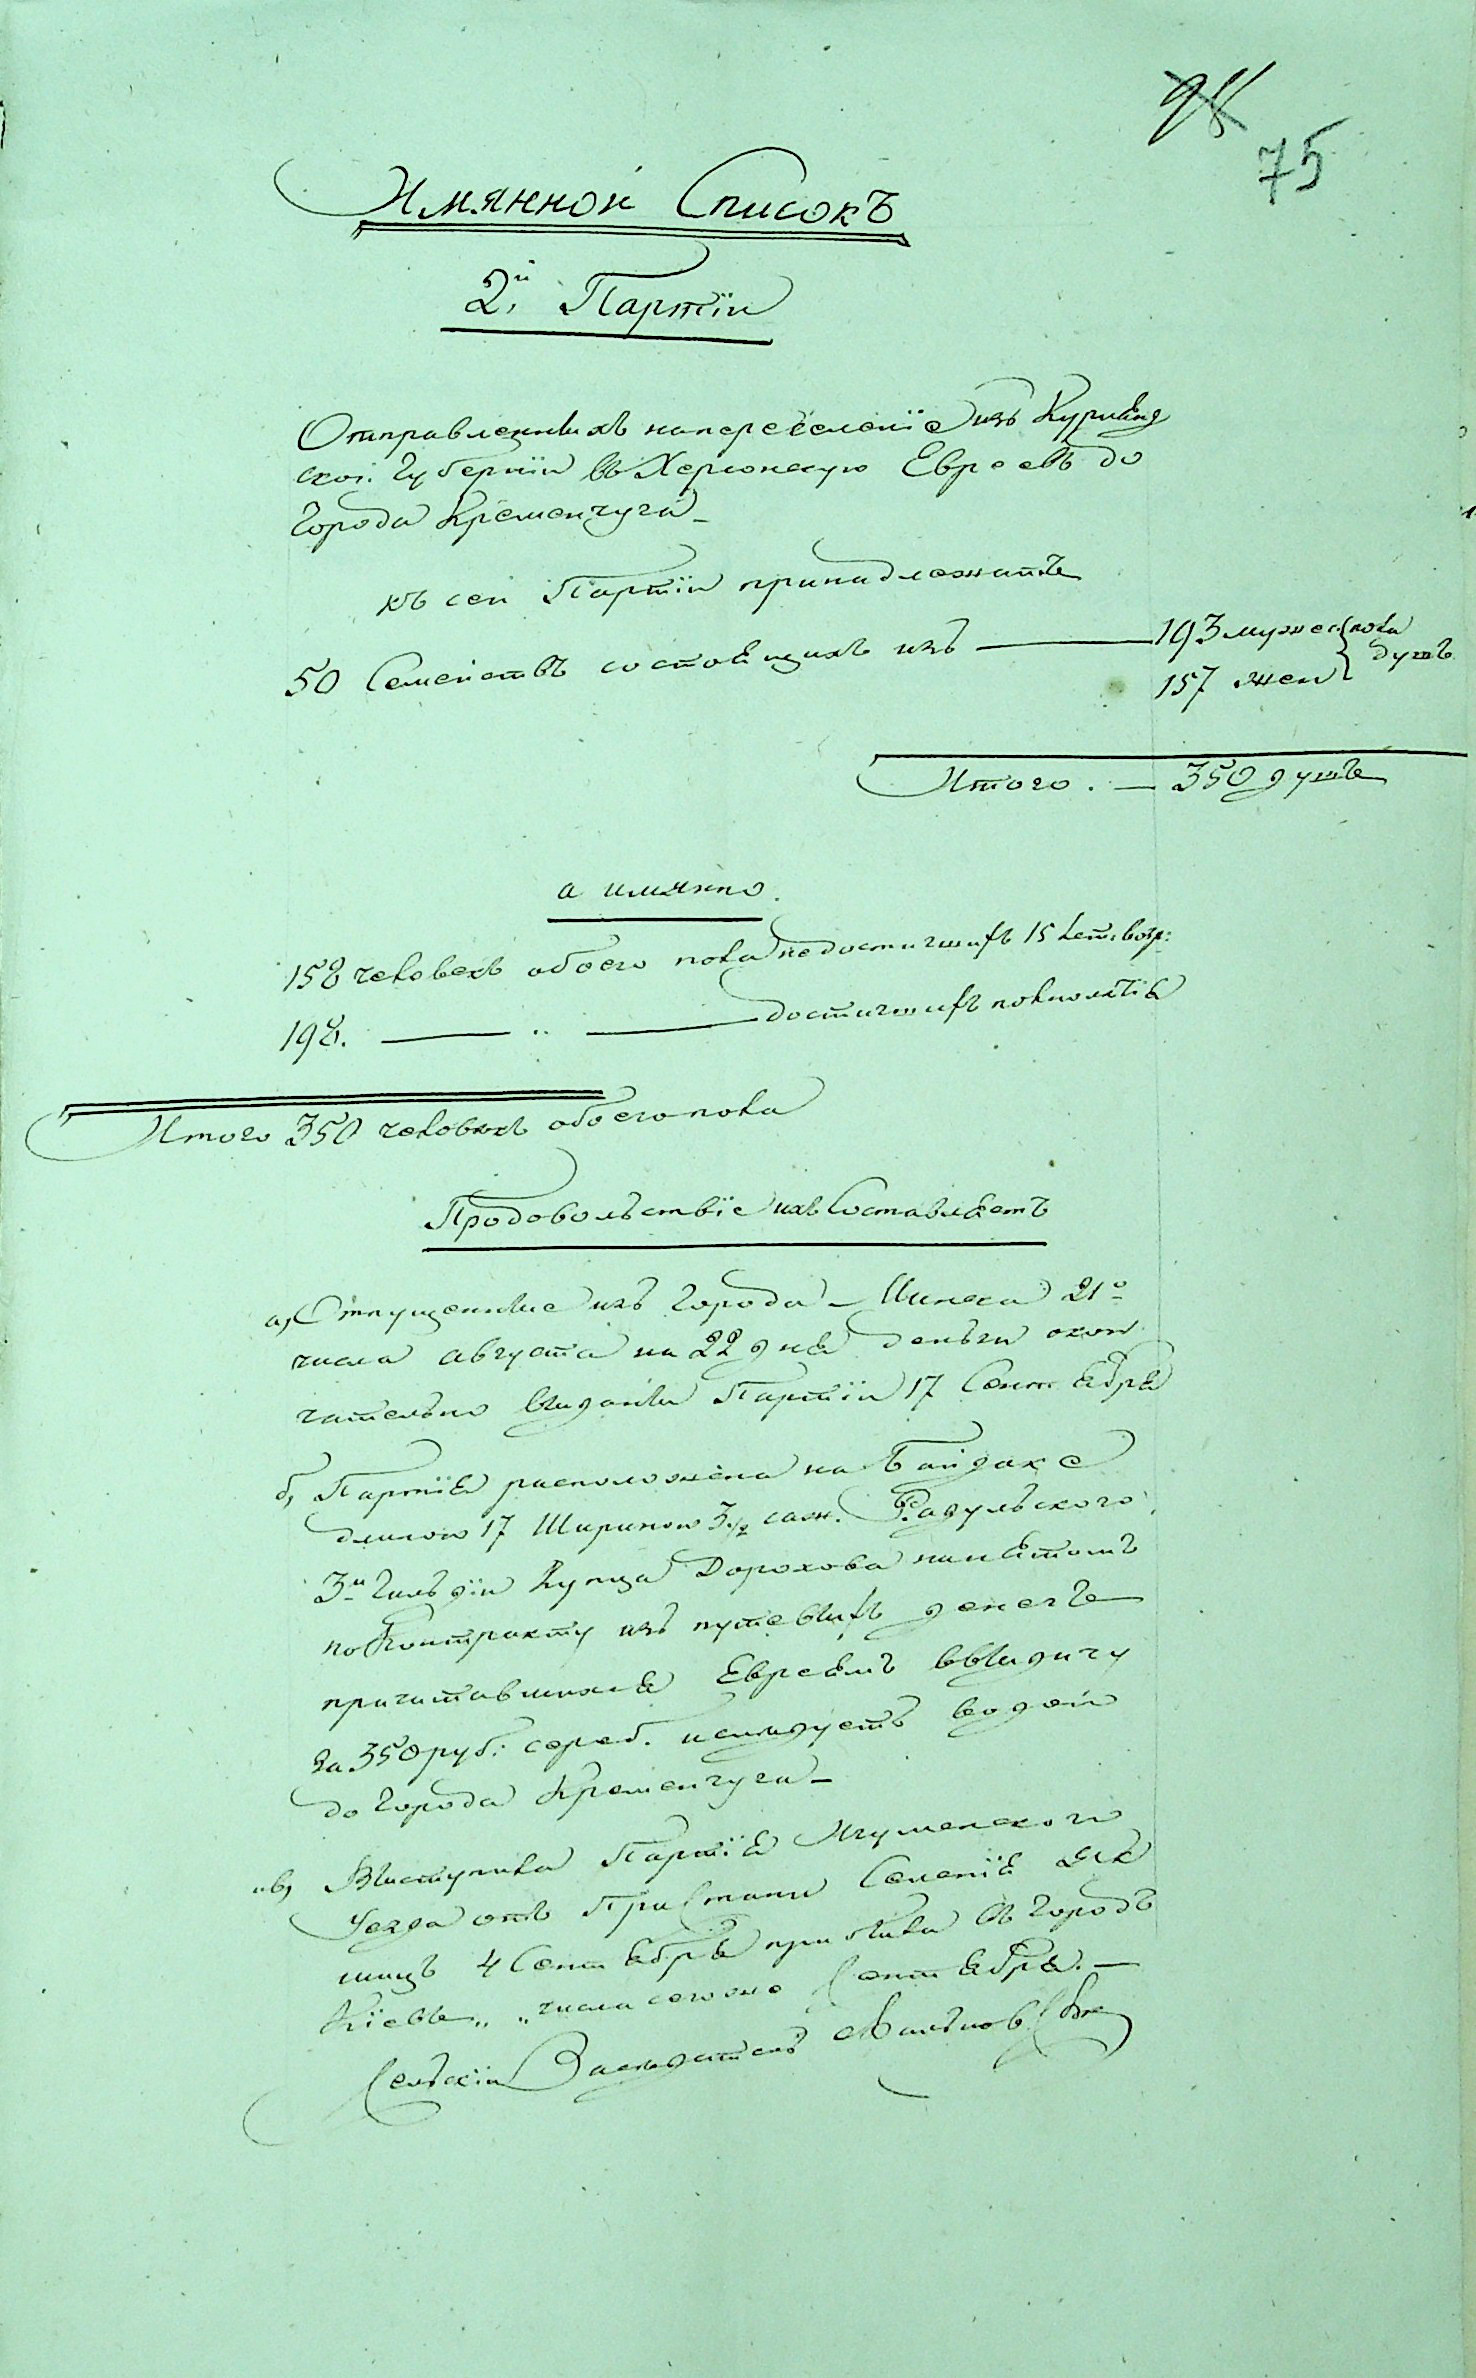 98
75
Имянной Списокъ
2й Партіи
Отправленныхъ на переселеніе изъ Курлянд
ской Губерніи въ Херсонскую Евреевъ до
Города Кременчуга
къ сей Партіи принадлежатъ
50 Семействъ состоящихъ изъ — 193 мужес. пола
157 жен. душъ
Итого. — 350 душъ
а имянно.
152 человекъ обоего пола недостигшихъ 15 лет. возр:
198. — „ — достигшихъ полнолѣтія
Итого 350 человѣкъ обоего пола
Продовольствіе ихъ Составляетъ
а, Отпущенные изъ Города Минска 21о
числа августа на 22 дня деньги окон
чательно выданы Партіи 17 Сентября
б, Партія расположена на Байдаке
длиною 17 Шириною 3 1/2 саж. Радульского
3й Гильдіи Купца Дорохова нанятомъ
по Контракту изъ путевыхъ денегъ
причитавшихся Евреямъ ввыдачу
за 350 руб: сереб. и следуетъ водой
до Города Кременчуга
в, Выступила Партія Игуменского
Уезда отъ Пристани
4 Сентября прибыла въ Городъ
Кіевъ „ „ числа сего же Сентября. —
Сельскій Заседатель